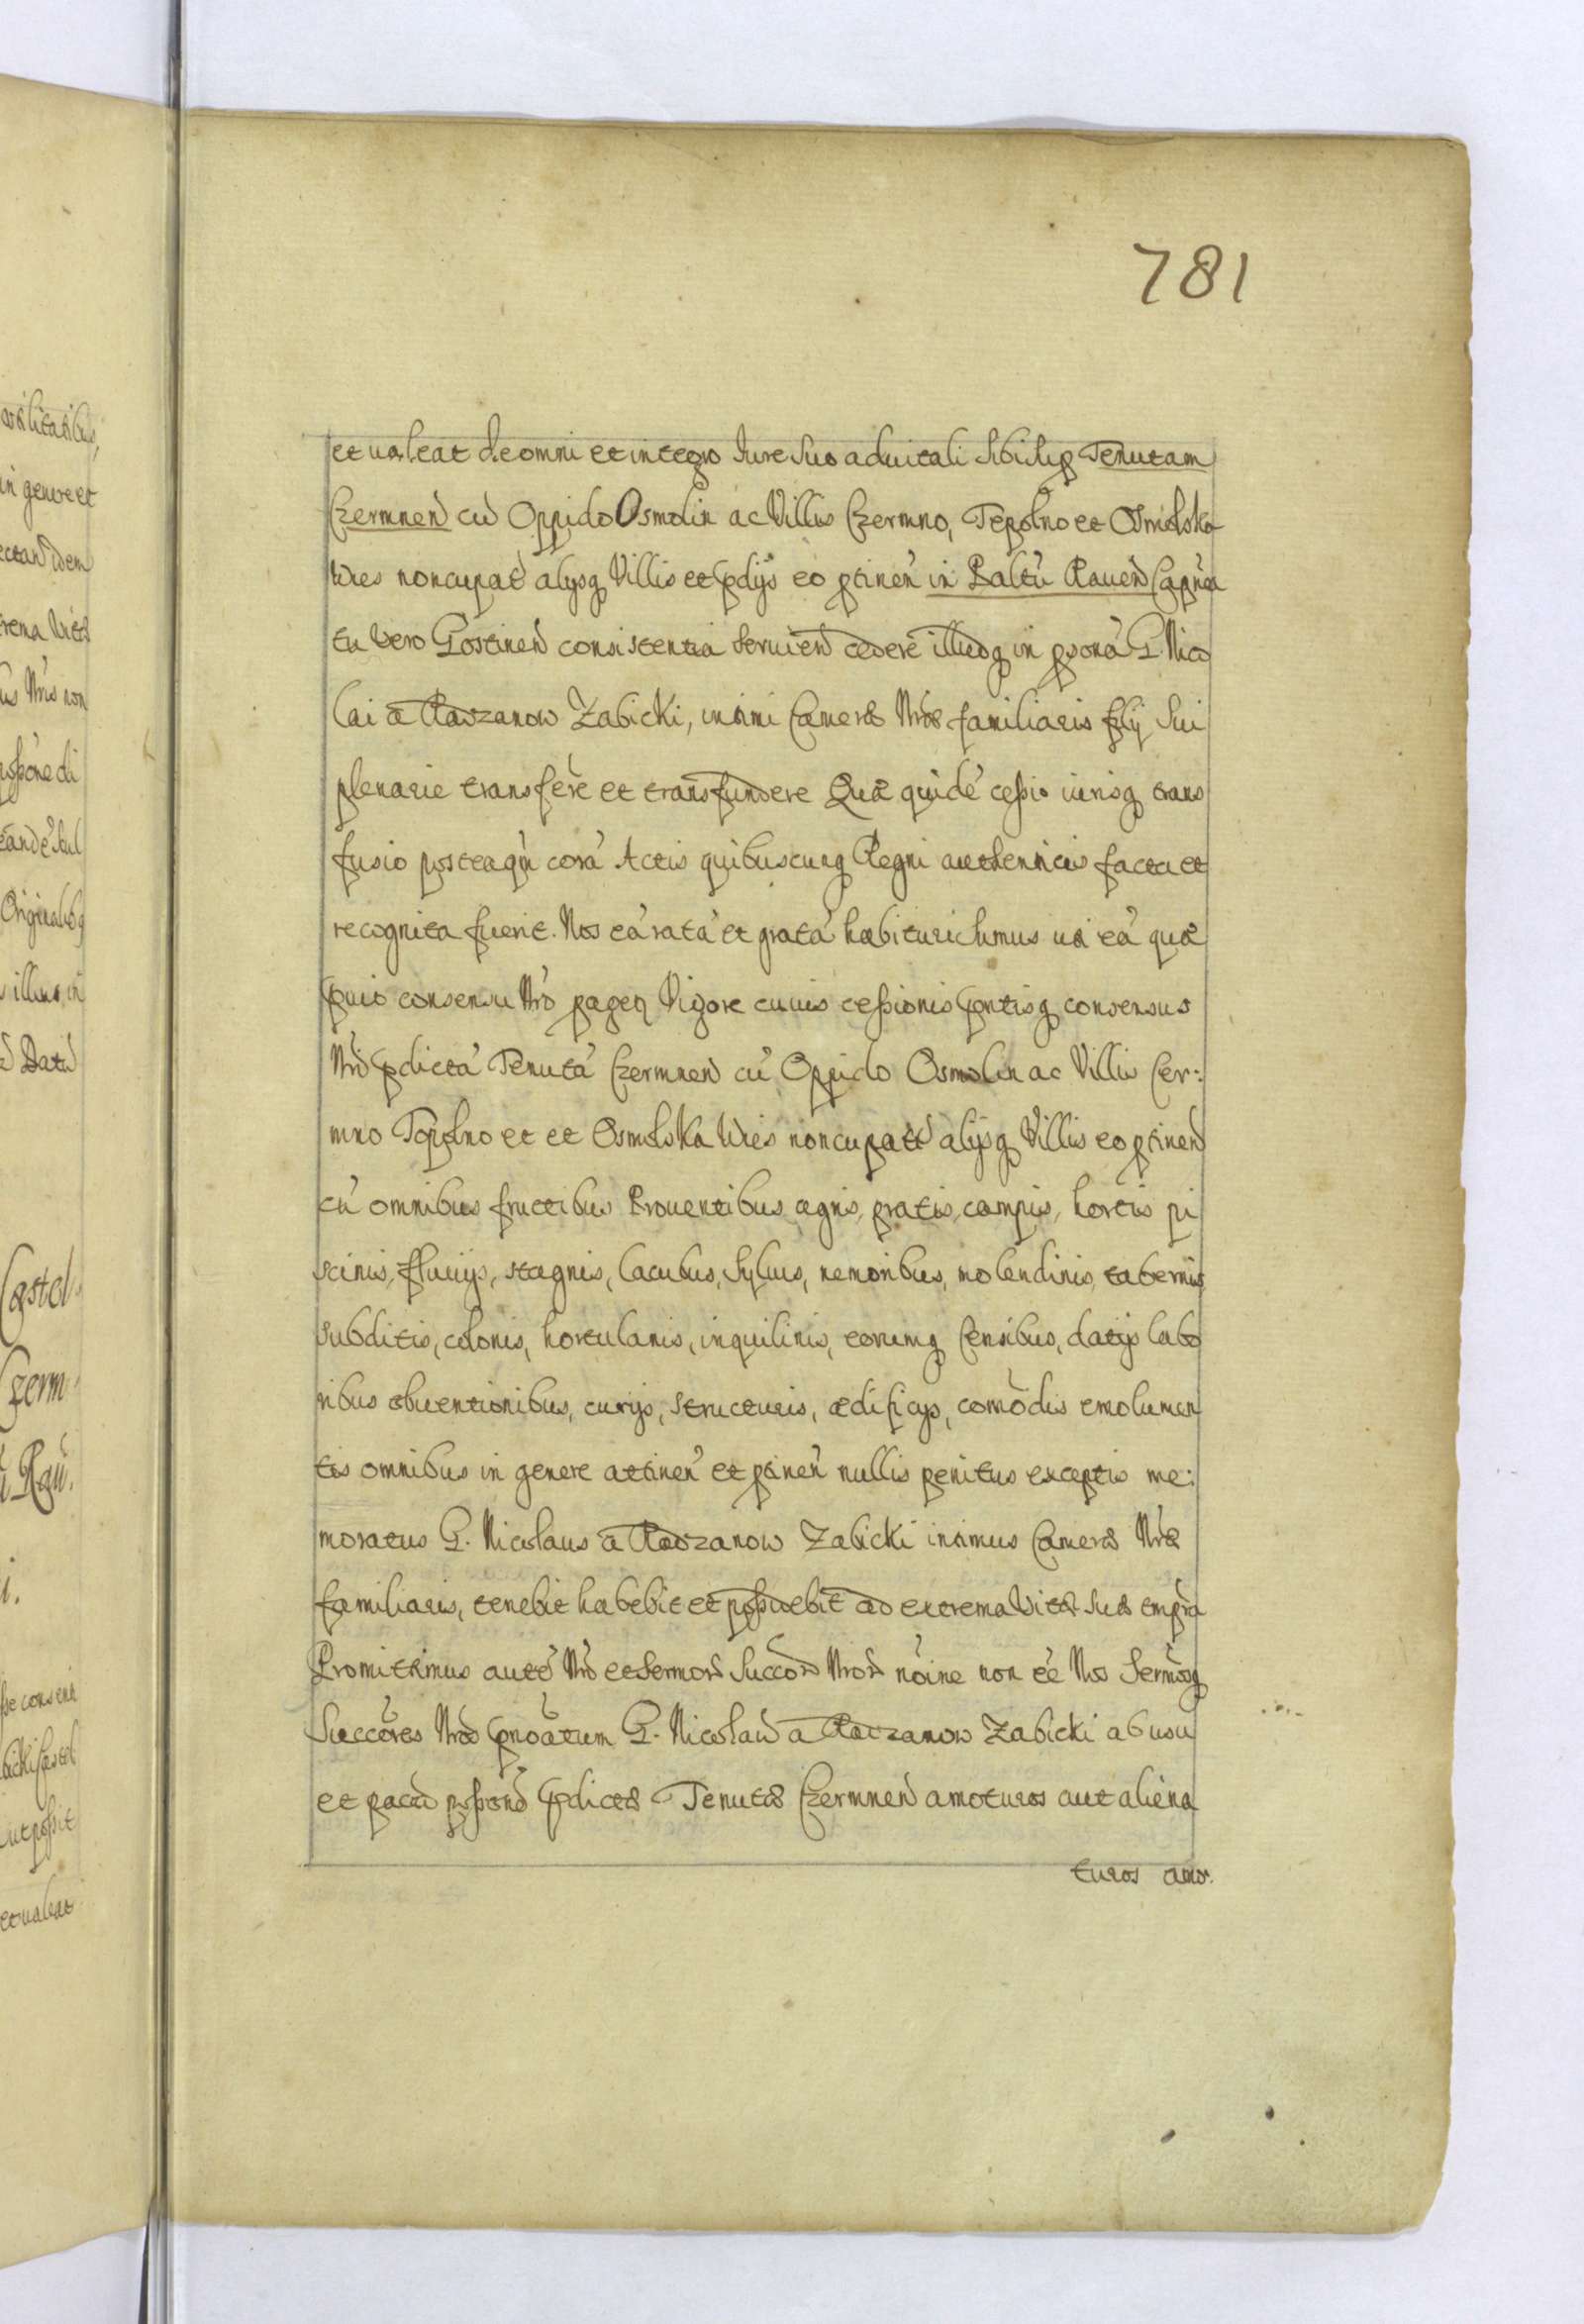 781
et ualeat de omni et integro Iure Suo aduitali Sibi Sup Tenutam
Czermnen cu Oppido Osmolin ac Villis Czermno, Tepolno et Osmolska
Wies noncupat alysq Villis et pdys eo ptinen in Paltu Rauen Capnea
tu Vero Gostinen consistentia Seruien cedere illudq in psona G. Nico
lai a Radzanow Zabicki, intimi Cameræ Nræ familiaris fly Sui
plenarie transfere et transfundere Quæ quide cessio iurisq trans
fusio posteaqm cora Actis quibuscunq Regni authenticis facta et
recognita fuerit. Nos ea rata et grata habituri Sumus uti ea quæ
puio consensu Nro pagen Vigore cuuis cessionis pntisq consensus
Nri pdicta Tenuta Czermnen cu Oppido Osmolin ac Villis Cer:
mno Topolno et et Osmolska Wies noncupatt alijsq Villis eo ptinen
cu omnibus fructibus Prouentibus agris, pratis, campis, hortis pi
scinis, fluuijs, stagnis, lacubus, Syluis, nemoribus, molendinis, tabernis
subditis, colonis, hortulanis, inquilinis, eorumq Censibus, datijs labo
ribus obuentionibus, curijs, structuris, ædificijs, comodis emolumen
tis omnibus in genere attinen et ptinen nullis penitus exceptis me:
moratus G. Nicolaus a Radzanow Zabicki intimus Cameræ Nræ
familiaris, tenebit habebit et possidebit ad extrema Vitæ Suæ tempra
Promittimus aute Nro et Sermor Succor Nror noine non ee Nos Sermosq
Succores Nros pnoatum G. Nicolau a Radzanow Zabicki ab usu
et paca possone pdictæ Tenutæ Czermnen amoturos aut aliena
turos amo.